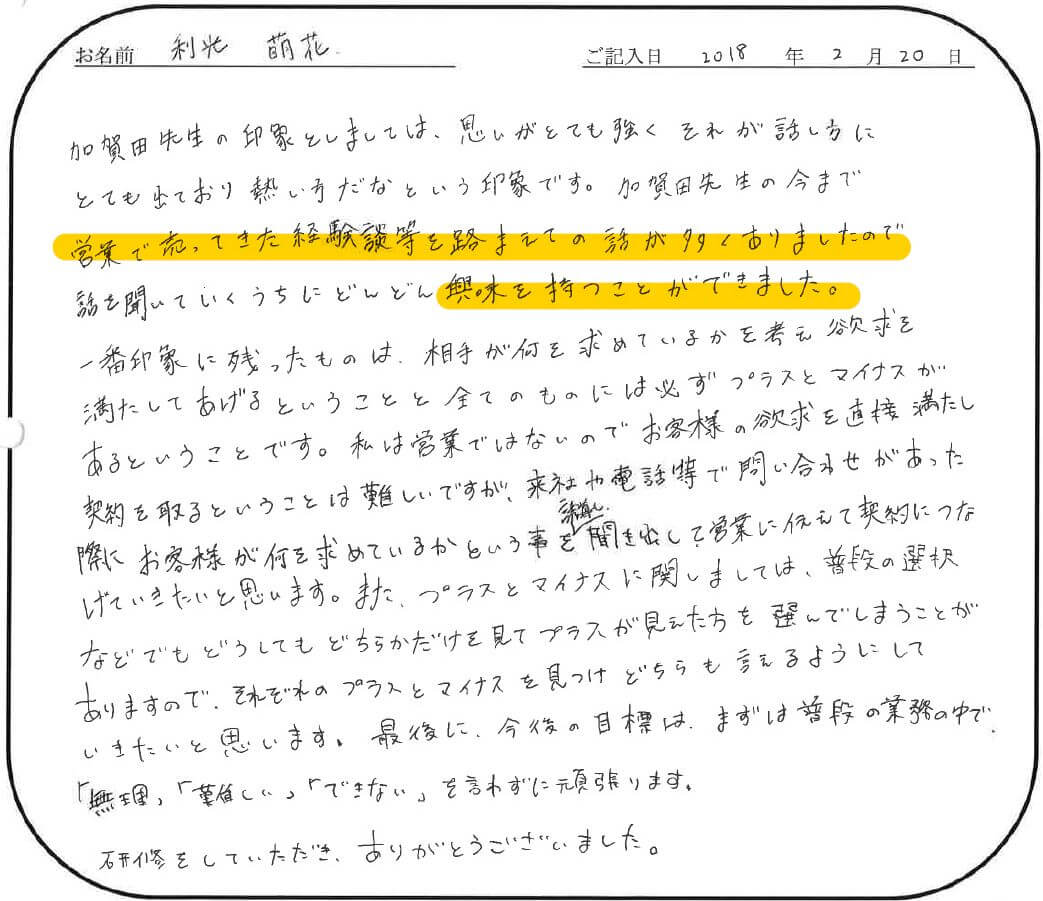 お名前 利光 萌花 ご記入日 2018 年 2 月 20 日
加賀田先生の印象としましては、思いがとても強くそれが話し方に
とても出ており熱い方だなという印象です。加賀田先生の今まで
営業で売ってきた経験談等を踏まえての話が多くありましたので
話を聞いていくうちにどんどん興味を持つことができました。
一番印象に残ったものは、相手が何を求めているかを考え欲求を
満たしてあげるということと全てのものには必ずプラスとマイナスが
あるということです。私は営業ではないのでお客様の欲求を直接満たし
契約を取るということは難しいですが、来社や電話等で問い合わせがあった
際にお客様が何を求めているかという事を聞き出して営業に伝えて契約につな
げていきたいと思います。また、プラスとマイナスに関しましては、普段の選択
などでもどうしてもどちらかだけを見てプラスが見えた方を選んでしまうことが
ありますので、それぞれのプラスとマイナスを見つけどちらも言えるようにして
いきたいと思います。最後に、今後の目標は、まずは普段の業務の中で、
「無理」「難しい」「できない」を言わずに頑張ります。
研修をしていただき、ありがとうございました。